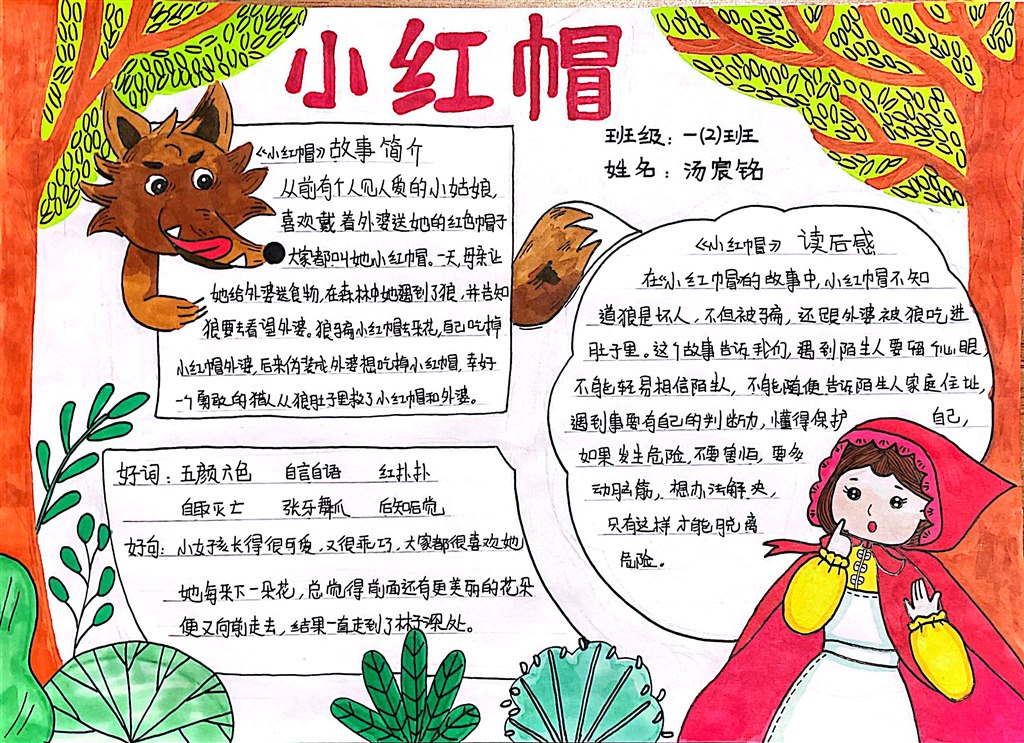 小红帽
班级：一(2)班
姓名：汤宸铭
《小红帽》故事简介
从前有个人见人爱的小姑娘，
喜欢戴着外婆送她的红色帽子
大家都叫她小红帽。一天，母亲让
她给外婆送食物，在森林中她遇到了狼，并告知
狼要去看望外婆。狼骗小红帽去采花，自己吃掉
小红帽外婆，后来伪装成外婆想吃掉小红帽，幸好
一个勇敢的猎人从狼肚子里救了小红帽和外婆。
《小红帽》读后感
在《小红帽》的故事中，小红帽不知
道狼是坏人，不但被骗，还跟外婆被狼吃进
肚子里。这个故事告诉我们，遇到陌生人要留个心眼，
不能轻易相信陌生人，不能随便告诉陌生人家庭住址，
遇到事要有自己的判断力，懂得保护自己，
如果发生危险，不要害怕，要多
动脑筋，想办法解决，
只有这样才能脱离
危险。
好词：五颜六色 自言自语 红扑扑
自取灭亡 张牙舞爪 后知后觉
好句：小女孩长得很可爱，又很乖巧，大家都很喜欢她
她每采下一朵花，总觉得前面还有更美丽的花朵
便又向前走去，结果一直走到了林子深处。